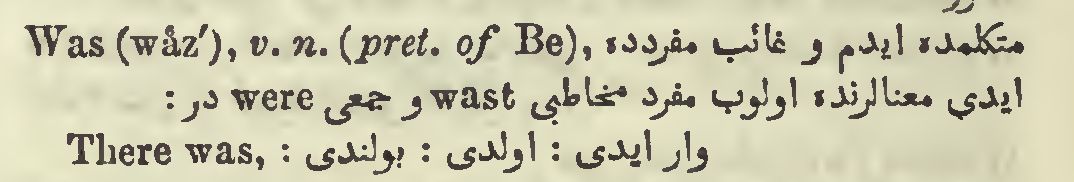 Was (wåz′), v. n. (pret. of Be), متكلمده ایدم و غائب مفردده
ایدی معنالرنده اولوب مفرد مخاطبی wast و جمعی were در :
There was, : وار ایدی : اولدی : بولندی